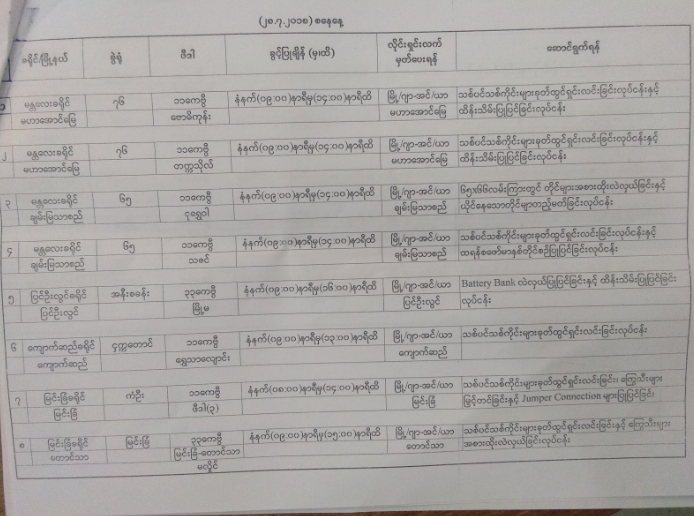 (၂၈.၇.၂၀၁၈) စနေနေ့
ခရိုင်/မြို့နယ် ခွဲရုံ ဖီဒါ ခွင့်ပြုချိန် (မှ/ထိ) လိုင်းရှင်းလက်မှတ်ပေးရန် ဆောင်ရွက်ရန်
၁ မန္တလေးခရိုင် ၇၆ ၁၁ကေဗွီ နံနက်(၀၉:၀၀)နာရီမှ(၁၄:၀၀)နာရီထိ မြို့/ဂျာ-အင်/ယာ သစ်ပင်သစ်ကိုင်းများခုတ်ထွင်ရှင်းလင်းခြင်းလုပ်ငန်းနှင့်
မဟာအောင်မြေ ဗောဓိကုန်း မဟာအောင်မြေ ထိန်းသိမ်းပြုပြင်ခြင်းလုပ်ငန်း
၂ မန္တလေးခရိုင် ၇၆ ၁၁ကေဗွီ နံနက်(၀၉:၀၀)နာရီမှ(၁၄:၀၀)နာရီထိ မြို့/ဂျာ-အင်/ယာ သစ်ပင်သစ်ကိုင်းများခုတ်ထွင်ရှင်းလင်းခြင်းလုပ်ငန်းနှင့်
မဟာအောင်မြေ တက္ကသိုလ် မဟာအောင်မြေ ထိန်းသိမ်းပြုပြင်ခြင်းလုပ်ငန်း
၃ မန္တလေးခရိုင် ၆၅ ၁၁ကေဗွီ နံနက်(၀၉:၀၀)နာရီမှ(၁၄:၀၀)နာရီထိ မြို့/ဂျာ-အင်/ယာ ၆၅x၆၆လမ်းကြားတွင် တိုင်များအစားထိုးလဲလှယ်ခြင်းနှင့်
ချမ်းမြသာစည် ငုရွှေဝါ ချမ်းမြသာစည် ယိုင်နေသောတိုင်များတည့်မတ်ခြင်းလုပ်ငန်း
၄ မန္တလေးခရိုင် ၆၅ ၁၁ကေဗွီ နံနက်(၀၉:၀၀)နာရီမှ(၁၄:၀၀)နာရီထိ မြို့/ဂျာ-အင်/ယာ သစ်ပင်သစ်ကိုင်းများခုတ်ထွင်ရှင်းလင်းခြင်းလုပ်ငန်းနှင့်
ချမ်းမြသာစည် သဇင် ချမ်းမြသာစည် ထရန်စဖော်မာနှစ်တိုင်စင်ပြုပြင်ခြင်းလုပ်ငန်း
၅ ပြင်ဦးလွင်ခရိုင် အနီးစခန်း ၃၃ကေဗွီ နံနက်(၀၉:၀၀)နာရီမှ(၁၆:၀၀)နာရီထိ မြို့/ဂျာ-အင်/ယာ Battery Bank လဲလှယ်ပြုပြင်ခြင်းနှင့် ထိန်းသိမ်းပြုပြင်ခြင်း
ပြင်ဦးလွင် မြို့မ ပြင်ဦးလွင် လုပ်ငန်း
၆ ကျောက်ဆည်ခရိုင် ငုတ္တောတောင် ၁၁ကေဗွီ နံနက်(၀၉:၀၀)နာရီမှ(၁၃:၀၀)နာရီထိ မြို့/ဂျာ-အင်/ယာ သစ်ပင်သစ်ကိုင်းများခုတ်ထွင်ရှင်းလင်းခြင်းလုပ်ငန်း
ကျောက်ဆည် ရွှေသာလျောင်း ကျောက်ဆည်
၇ မြင်းခြံခရိုင် ကံဦး ၁၁ကေဗွီ နံနက်(၀၈:၀၀)နာရီမှ(၁၄:၀၀)နာရီထိ မြို့/ဂျာ-အင်/ယာ သစ်ပင်သစ်ကိုင်းများခုတ်ထွင်ရှင်းလင်းခြင်း၊ ကြွေသီးများ
မြင်းခြံ ဖီဒါ(၃) မြင်းခြံ မြှင့်တင်ခြင်းနှင့် Jumper Connection များပြုပြင်ခြင်း
၈ မြင်းခြံခရိုင် မြင်းခြံ ၃၃ကေဗွီ နံနက်(၀၉:၀၀)နာရီမှ(၁၅:၀၀)နာရီထိ မြို့/ဂျာ-အင်/ယာ သစ်ပင်သစ်ကိုင်းများခုတ်ထွင်ရှင်းလင်းခြင်းနှင့် ကြွေသီးများ
တောင်သာ မြင်းခြံ-တောင်သာ တောင်သာ အစားထိုးလဲလှယ်ခြင်းလုပ်ငန်း
မလှိုင်